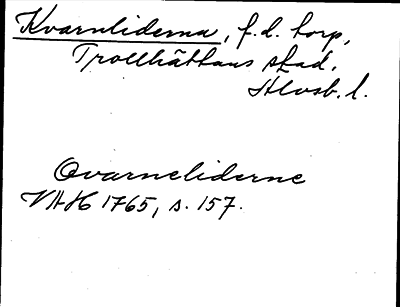 Kvarnliderna, f.d. torp,
Trollhättans stad,
Älvsb. l.
Qvarneliderne
VAH 1765, s. 157.